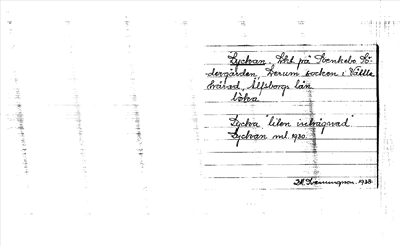 Lyckan, lht på Svenkebo Sö-
dergården, Lerum socken i Vättle
härad, Älfsborgs län.
Lycka "liten inhägnad"
Lyckan ml. 1930.
1938.